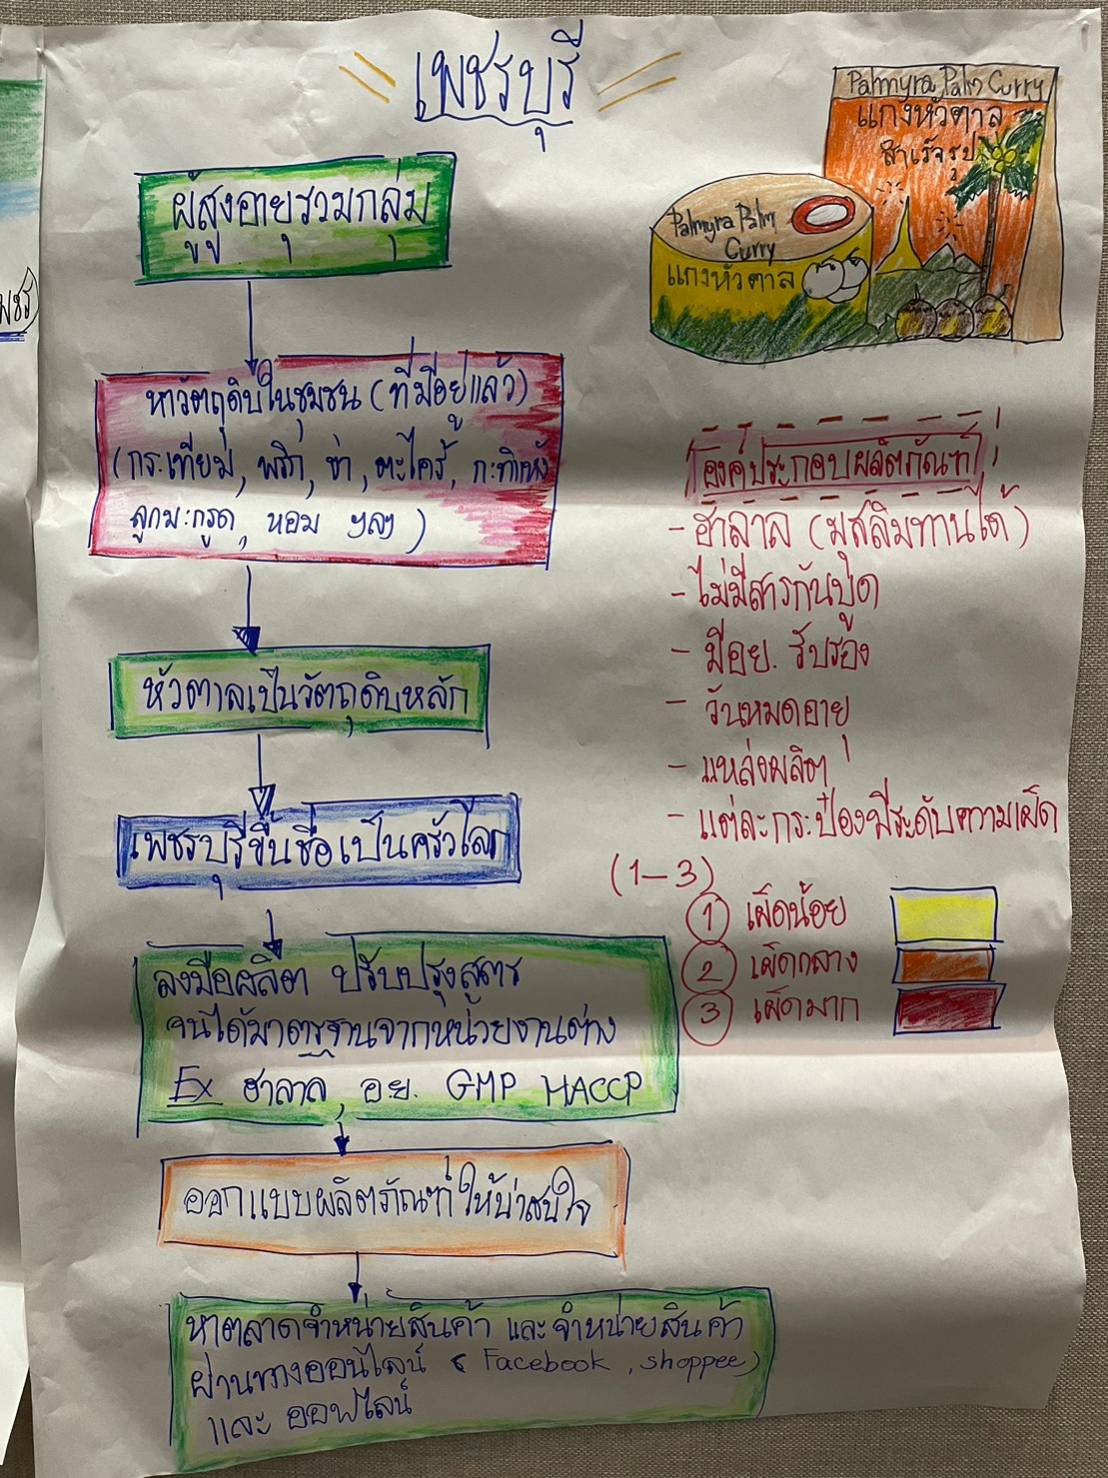 เพชรบุรี
Palmyra Palm Curry
แกงหัวตาล
สำเร็จรูป
Palmyra Palm
Curry
แกงหัวตาล
ผู้สูงอายุรวมกลุ่ม
หาวัตถุดิบในชุมชน (ที่มีอยู่แล้ว)
(กระเทียม, พริก, ข่า, ตะไคร้, กะทิแห้ง
ลูกมะกรูด, หอม ฯลฯ )
หัวตาลเป็นวัตถุดิบหลัก
เพชรบุรีขึ้นชื่อเป็นครัวโลก
ลงมือผลิต ปรับปรุงสูตร
จนได้มาตรฐานจากหน่วยงานต่าง
Ex ฮาลาล, อ.ย. GMP HACCP
ออกแบบผลิตภัณฑ์ให้น่าสนใจ
หาตลาดจำหน่ายสินค้า และจำหน่ายสินค้า
ผ่านทางออนไลน์ ( Facebook , shoppee)
และ ออฟไลน์
องค์ประกอบผลิตภัณฑ์
- ฮาลาล (มุสลิมทานได้)
- ไม่มีสารกันบูด
- มีอย. รับรอง
- วันหมดอายุ
- แหล่งผลิต
- แต่ละกระป๋องมีระดับความเผ็ด
(1-3)
1 เผ็ดน้อย
2 เผ็ดกลาง
3 เผ็ดมาก